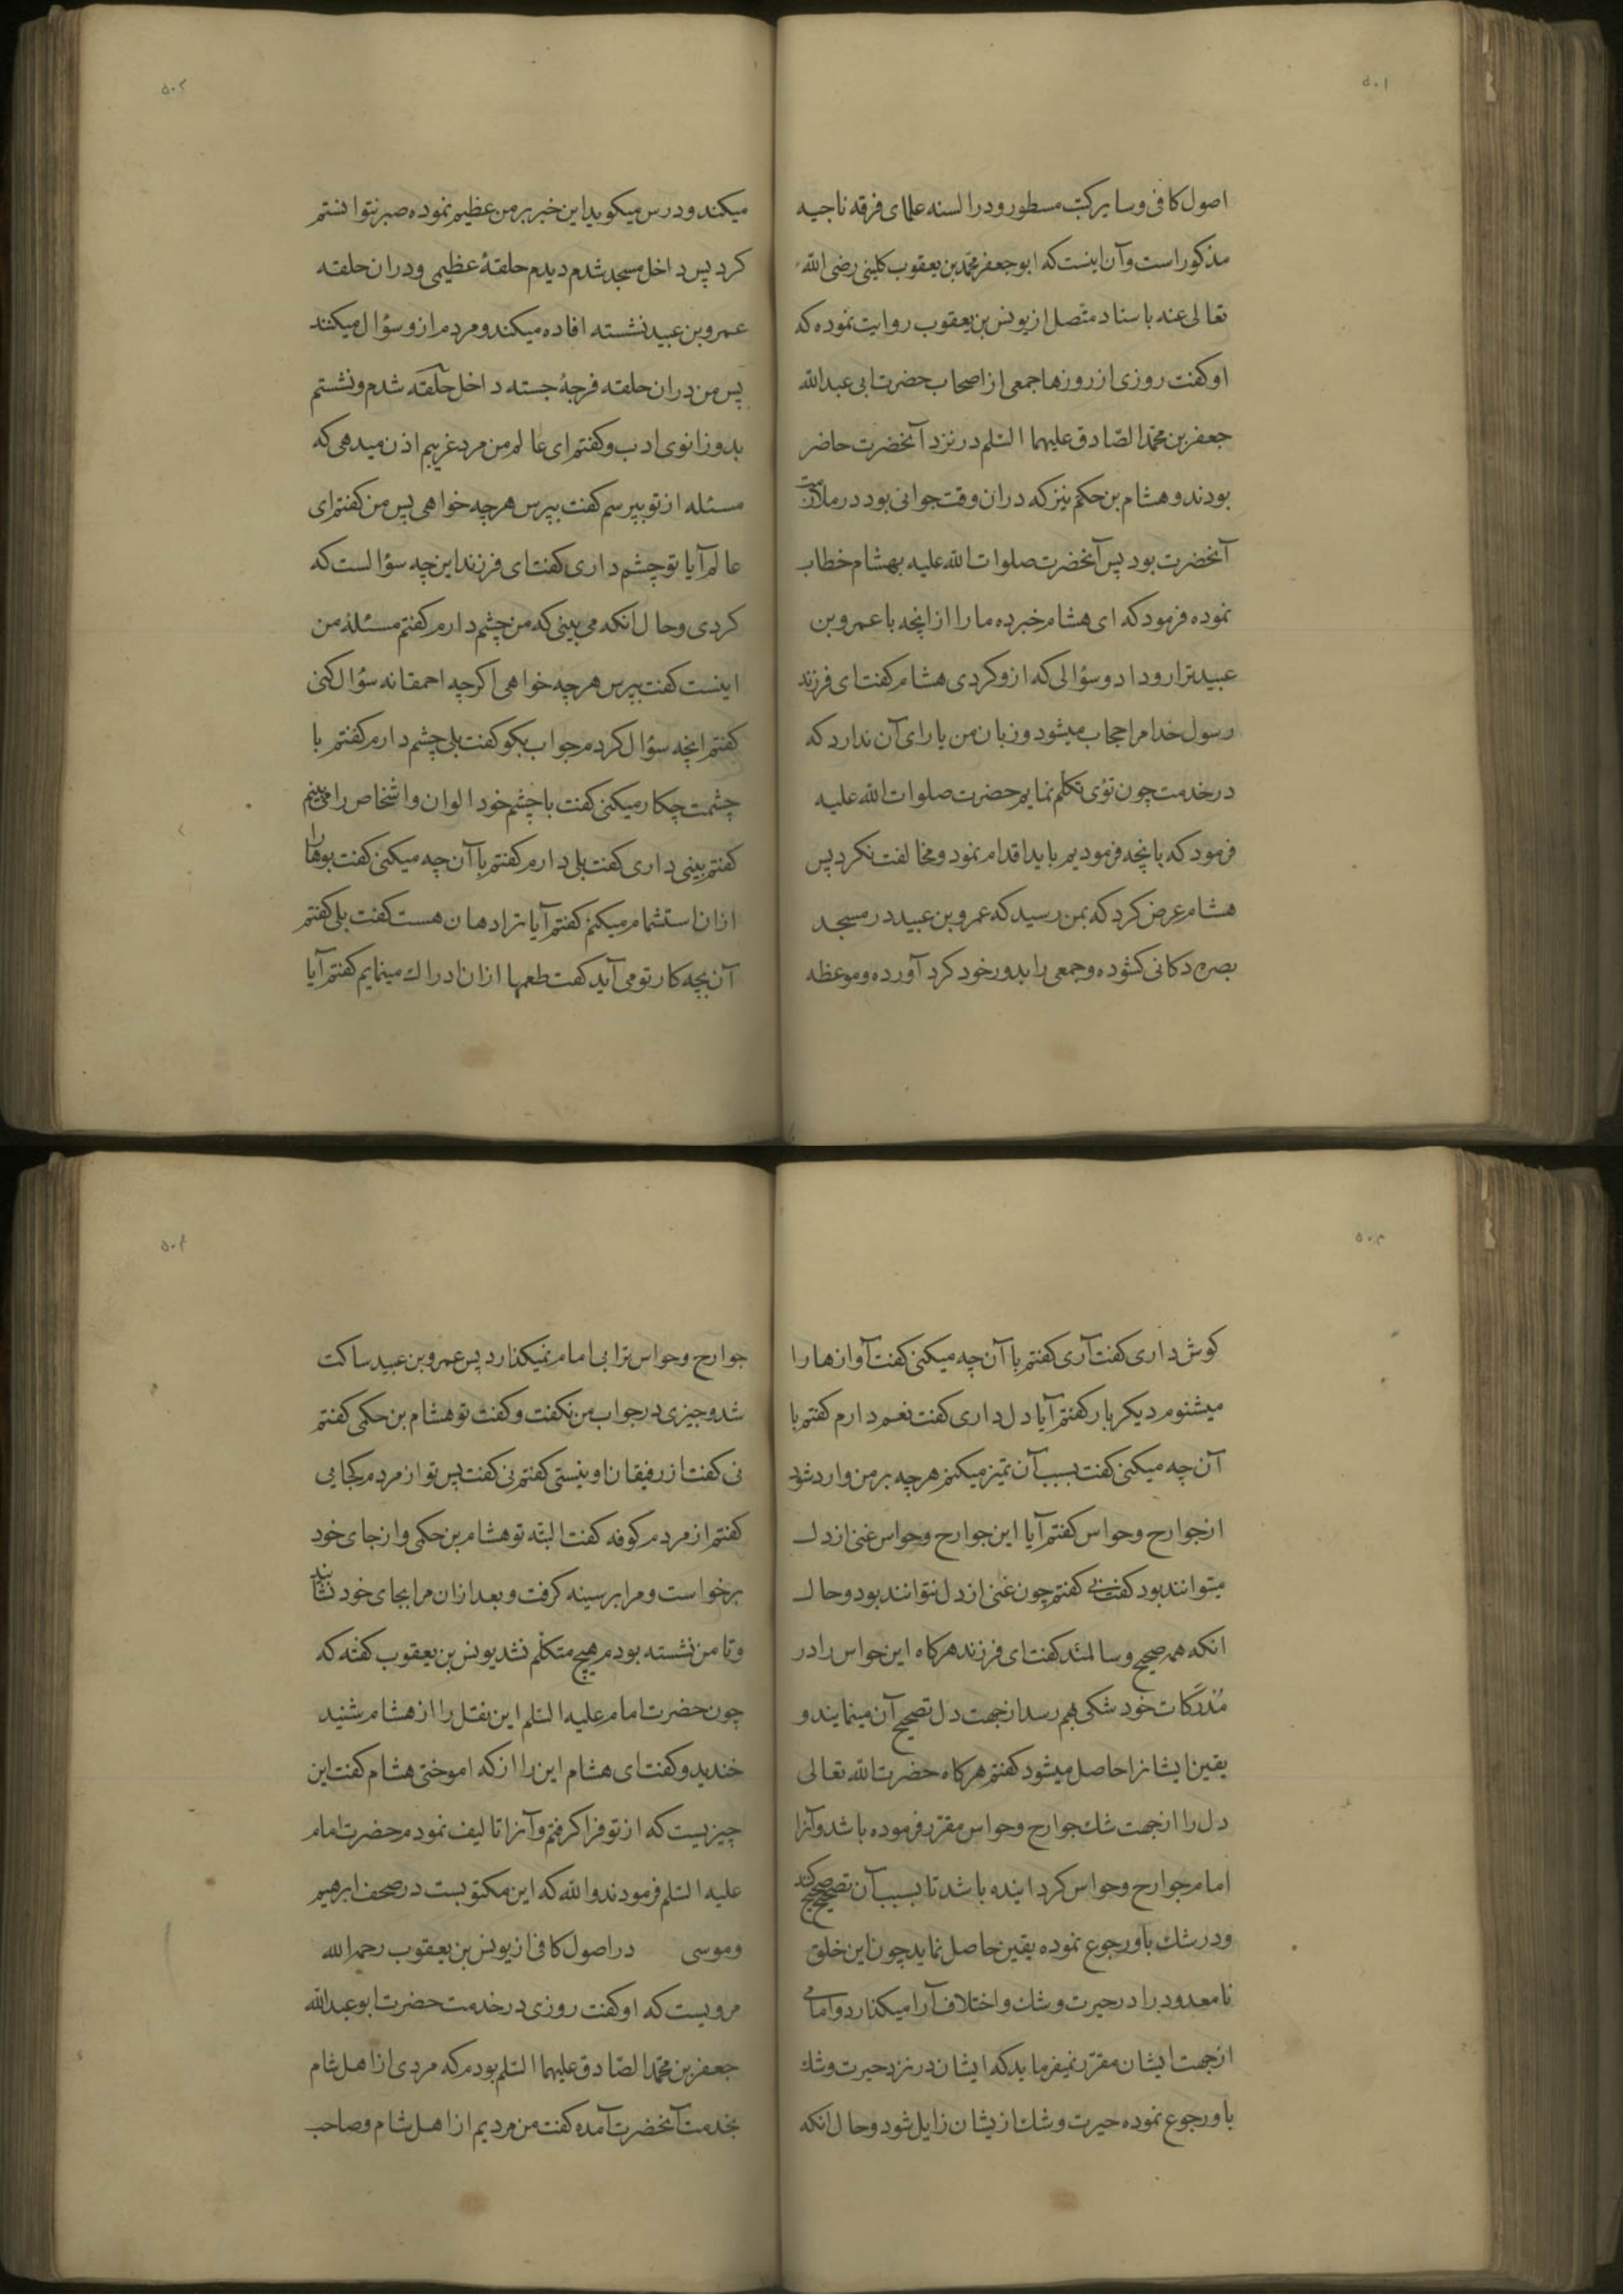 ۵۰۱
اصول کافی و سایر کتب مسطور و در السنه علمای فرقه ناجیه
مذکور است و آن اینست که ابو جعفر محمد بن یعقوب کلینی رضی الله
تعالی عنه باسناد متصل از یونس بن یعقوب روایت نموده که
او کفت روزی از روزها جمعی از اصحاب حضرت ابی عبد الله
جعفر بن محمد الصادق علیهما السلم در نزد آنحضرت حاضر
بودند و هشام بن حکم نیز که دران وقت جوانی بود در ملازمت
آنحضرت بود پس آنحضرت صلوات الله علیه بهشام خطاب
نموده فرمود که ای هشام خبر ده ما را از انچه با عمرو بن
عبید ترا رو داد و سؤالی که ازو کردی هشام کفت ای فرزند
رسول خدا مرا حجاب میشود و زبان من یارای آن ندارد که
در خدمت چون توئی تکلم نمایم حضرت صلوات الله علیه
فرمود که بانچه فرمودیم باید اقدام نمود و مخالفت نکرد پس
هشام عرض کرد که بمن رسید که عمرو بن عبید در مسجد
بصره دکانی کشوده و جمعی را بدور خود کرد آورده و موعظه
۵۰۲
میکند و درس میکوید این خبر بر من عظیم نموده صبر نتوانستم
کرد پس داخل مسجد شدم دیدم حلقهٔ عظیمی و دران حلقه
عمرو بن عبید نشسته افاده میکند و مردم ازو سؤال میکنند
پس من دران حلقه فرجهٔ جسته داخل حلقه شدم و نشستم
بدو زانوی ادب و کفتم ای عالم من مرد غریبم اذن میدهی که
مسئله از تو بپرسم کفت بپرس هرچه خواهی پس من کفتم ای
عالم آیا تو چشم داری کفت ای فرزند این چه سؤالست که
کردی و حال انکه می بینی که من چشم دارم کفتم مسئله من
اینست کفت بپرس هرچه خواهی اکرچه احمقانه سؤال کنی
کفتم انچه سؤال کردم جواب بکو کفت بلی چشم دارم کفتم با
چشمت چکار میکنی کفت با چشم خود الوان و اشخاص را می بینم
کفتم بینی داری کفت بلی دارم کفتم با آن چه میکنی کفت بوها را
ازان استشمام میکنم کفتم آیا ترا دهان هست کفت بلی کفتم
آن بچه کار تو می آید کفت طعمها ازان ادراك مینمایم کفتم آیا
۵۰۳
کوش داری کفت آری کفتم با آن چه میکنی کفت آوازها را
میشنوم دیکر بار کفتم آیا دل داری کفت نعم دارم کفتم با
آن چه میکنی کفت بسبب آن تمیز میکنم هرچه بر من وارد شود
از جوارح و حواس کفتم آیا این جوارح و حواس غنی از دل
میتوانند بود کفت نی کفتم چون غنی از دل نتوانند بود و حال
انکه همه صحیح و سالمند کفت ای فرزند هرکاه این حواس را در
مُدرَکات خود شکی بهم رسد از جهت دل تصحیح آن مینمایند و
یقین ایشانرا حاصل میشود کفتم هرکاه حضرت الله تعالی
دل را از جهت شك جوارح و حواس مقرر فرموده باشد و آنرا
امام جوارح و حواس کردانیده باشد تا بسبب آن تصحیح صحیح کند
و در شك باو رجوع نموده یقین حاصل نماید چون این خلق
نامعدود را در حیرت و شك و اختلاف آرا میکذارد و امامی
از جهت ایشان مقرر نمیفرماید که ایشان در نزد حیرت و شك
باو رجوع نموده حیرت و شك از یشان زایل شود و حال انکه
۵۰۴
جوارح و حواس ترا بی امام نمیکذارد پس عمرو بن عبید ساکت
شد و چیزی در جواب من نکفت و کفت تو هشام بن حکمی کفتم
نی کفت از رفیقان او نیستی کفتم نی کفت پس تو از مردم کجایی
کفتم از مردم کوفه کفت البته تو هشام بن حکمی و از جای خود
برخواست و مرا بر سینه کرفت و بعد ازان مرا بجای خود نشانید
و تا من نشسته بودم هیچ متکلم نشد یونس بن یعقوب کفته که
چون حضرت امام علیه السلم این نقل را از هشام شنید
خندید و کفت ای هشام این را از که اموختی هشام کفت این
چیزیست که از تو فرا کرفتم و آنرا تالیف نمودم حضرت امام
علیه السلم فرمودند و الله که این مکتوبست در صحف ابرهیم
و موسی در اصول کافی از یونس بن یعقوب رحمه الله
مرویست که او کفت روزی در خدمت حضرت ابو عبد الله
جعفر بن محمد الصادق علیهما السلم بودم که مردی از اهل شام
بخدمت آنحضرت آمده کفت من مردیم از اهل شام و صاحب